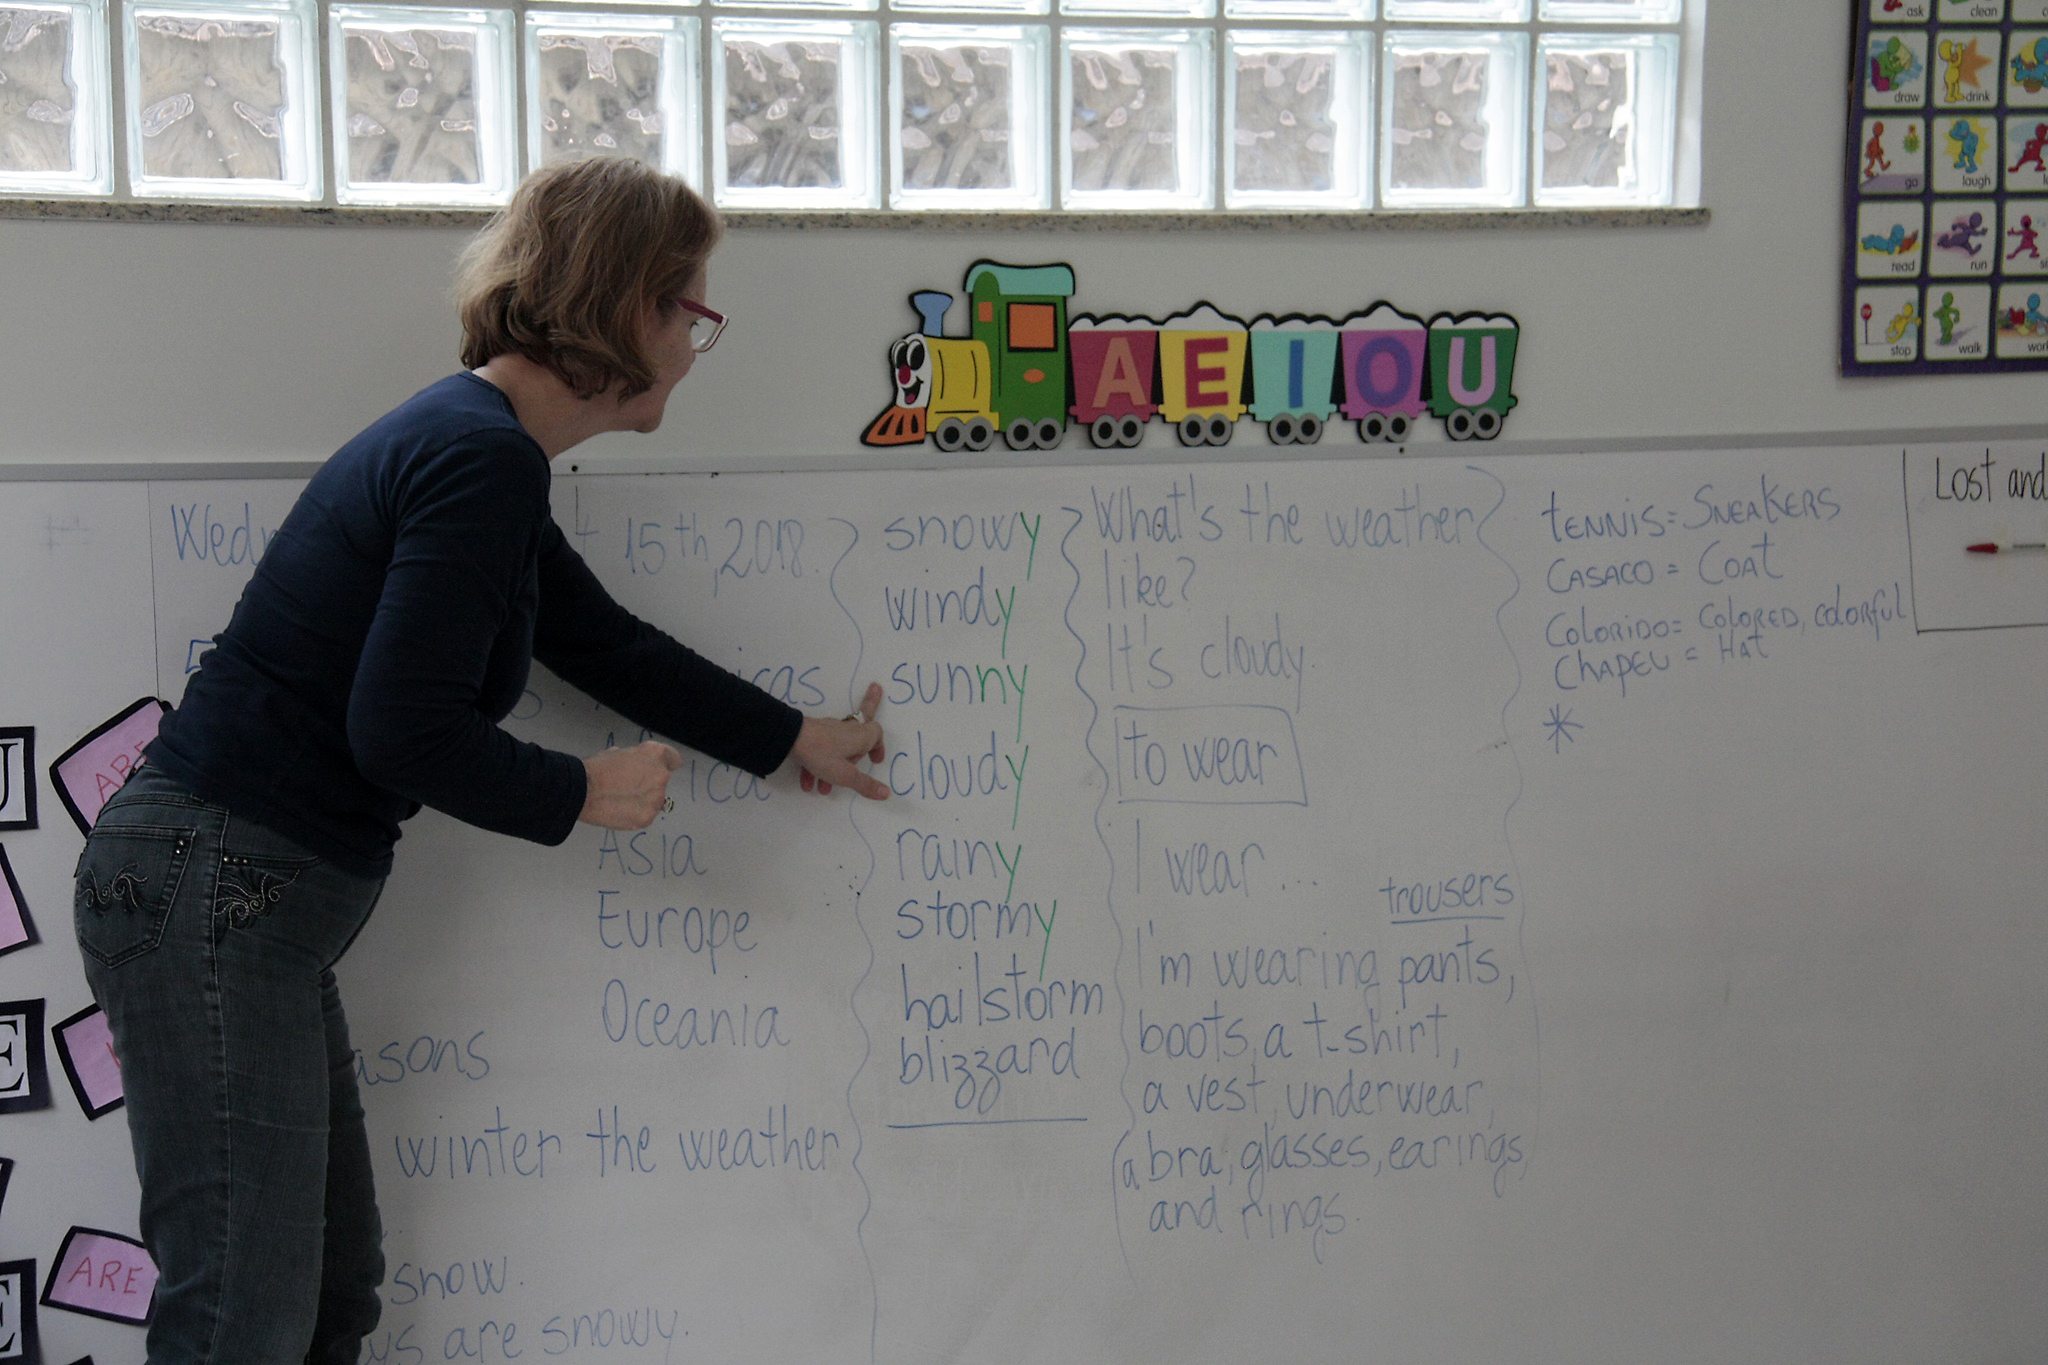 ask
clean
draw
drink
go
laugh
read
run
stop
walk
A E I O U
15th, 2018.
Asia
Europe
Oceania
winter the weather
snow.
are snowy.
snowy
windy
sunny
cloudy
rainy
stormy
hailstorm
blizzard
What's the weather
like?
It's cloudy.
to wear
I wear...
trousers
I'm wearing pants,
boots, a t-shirt,
a vest, underwear,
a bra, glasses, earings,
and rings.
tENNIS = SNEAKERS
CASACO = COAt
COLORIDO = COLORED, COLORFUL
CHAPEU = HAt
*
Lost and
U
ARE
E
ARE
E